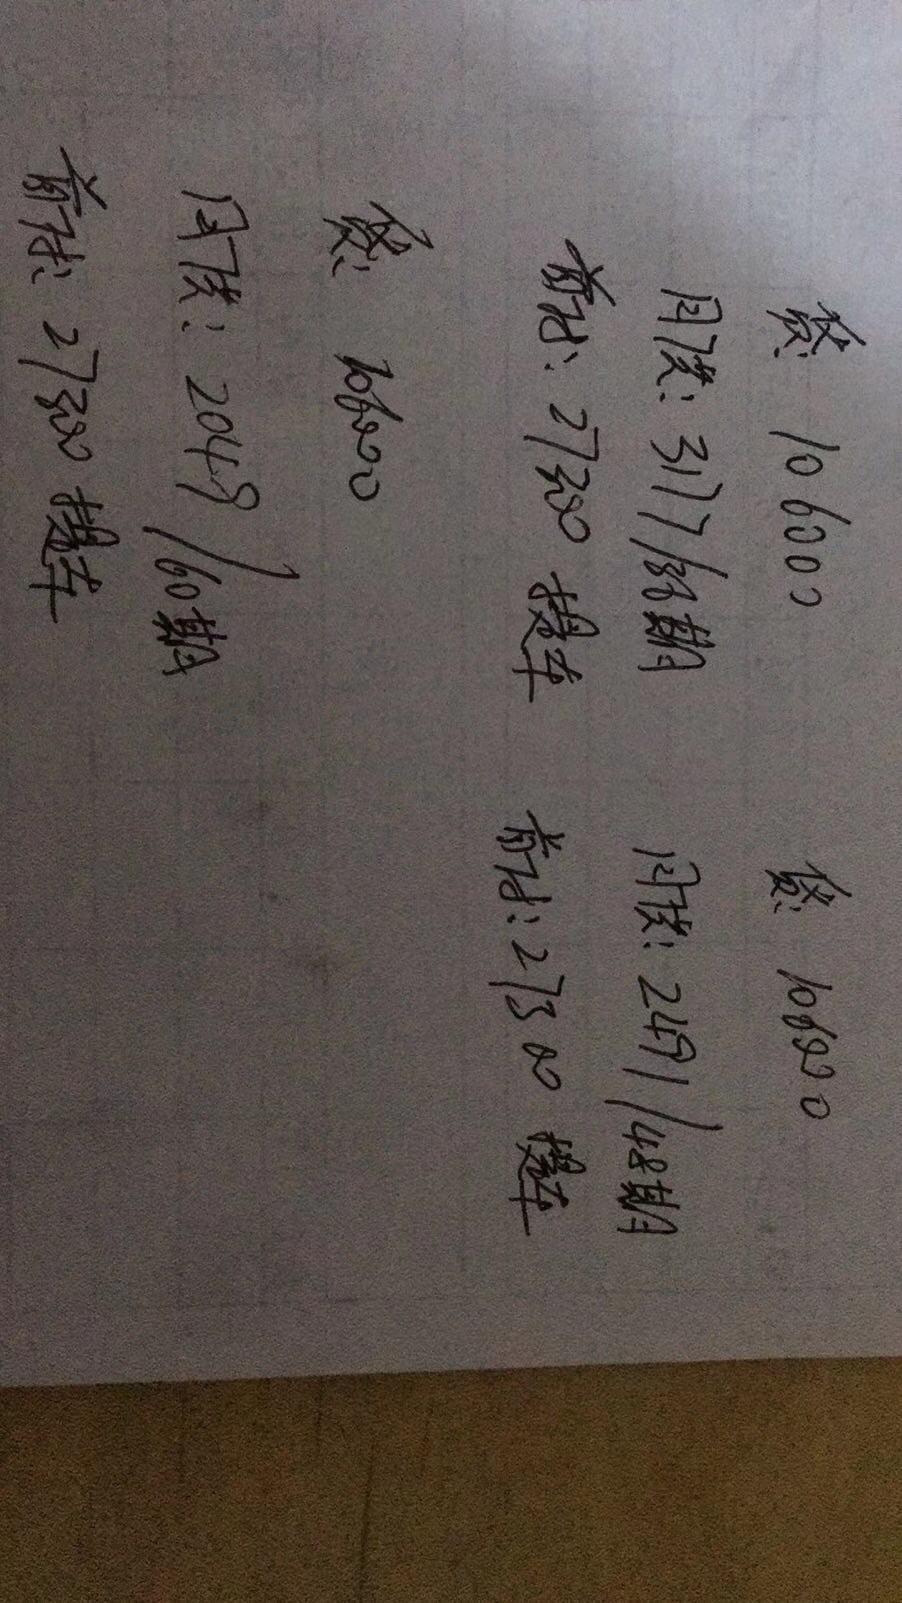 贷: 106000
月供: 3177/36期
前付: 27300 提车
贷: 106000
月供: 2491/48期
前付: 27300 提车
贷: 106000
月供: 2049/60期
前付: 27300 提车